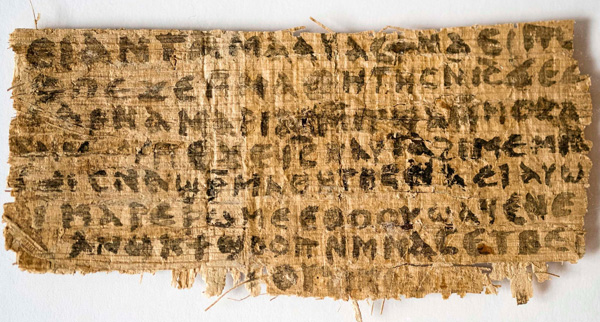 ⲉⲓ ⲁⲛ ⲧⲁⲙⲁⲁⲩ ⲁⲥϯ ⲛⲁⲉⲓ ⲡⲱ
ⲥ ⲡⲉϫⲉ ⲙⲙⲁⲑⲏⲧⲏⲥ ⲛⲓ̅ⲥ̅ ϫⲉ ⲥ
ⲁⲣⲛⲁ ⲙⲁⲣⲓⲁⲙ ⲙⲡϣⲁ ⲙⲙⲟⲥ ⲁ
ⲡⲉϫⲉ ⲓ̅ⲥ̅ ⲛⲁⲩ ⲧⲁϩⲓⲙⲉ ⲙⲛ
ⲥⲛⲁϣ ⲣⲙⲁⲑⲏⲧⲏⲥ ⲛⲁⲉⲓ ⲁⲩⲱ
ⲓ ⲙⲁⲣⲉ ⲣⲱⲙⲉ ⲉⲑⲟⲟⲩ ϣⲁϥⲉ ⲛⲉ
ⲁⲛⲟⲕ ϯϣⲟⲟⲡ ⲛⲙⲙⲁⲥ ⲉⲧⲃⲉ ⲡ